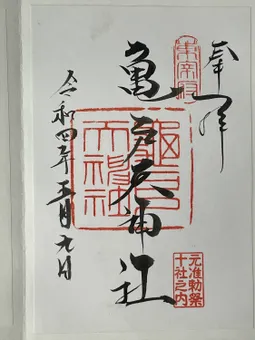 奉拝
東宰府
亀戸天神社
龜戸天神社
元准勅祭
十社之内
令和四年五月九日